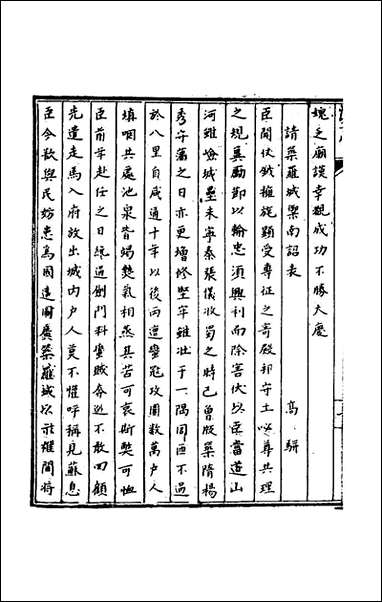 塊之廟謨幸覩成功不勝大慶
請築羅城禦南詔表　高駢
臣聞伏鉞擁旄顯受專征之寄殿邦守土必尊共理
之規冀勵節以輸忠須興利而除害伏以臣當道山
河雖嶮城壘未寧秦張儀收蜀之時已曾版築隋楊
秀守藩之日亦更增修堅牢雖壯于一隅周匝不過
於八里自咸通十年以後兩遭蠻寇攻圍數萬户人
填咽共處池泉皆竭熱氣相蒸其苦可哀斯弊可恤
臣前年赴任之日經過劍門料蠻賊奔迸不敢回顧
先遣走馬入府放出城内户人莫不懽呼稱見蘇息
臣今欲與民防患為國遠圖廣築羅城以示雄閫將